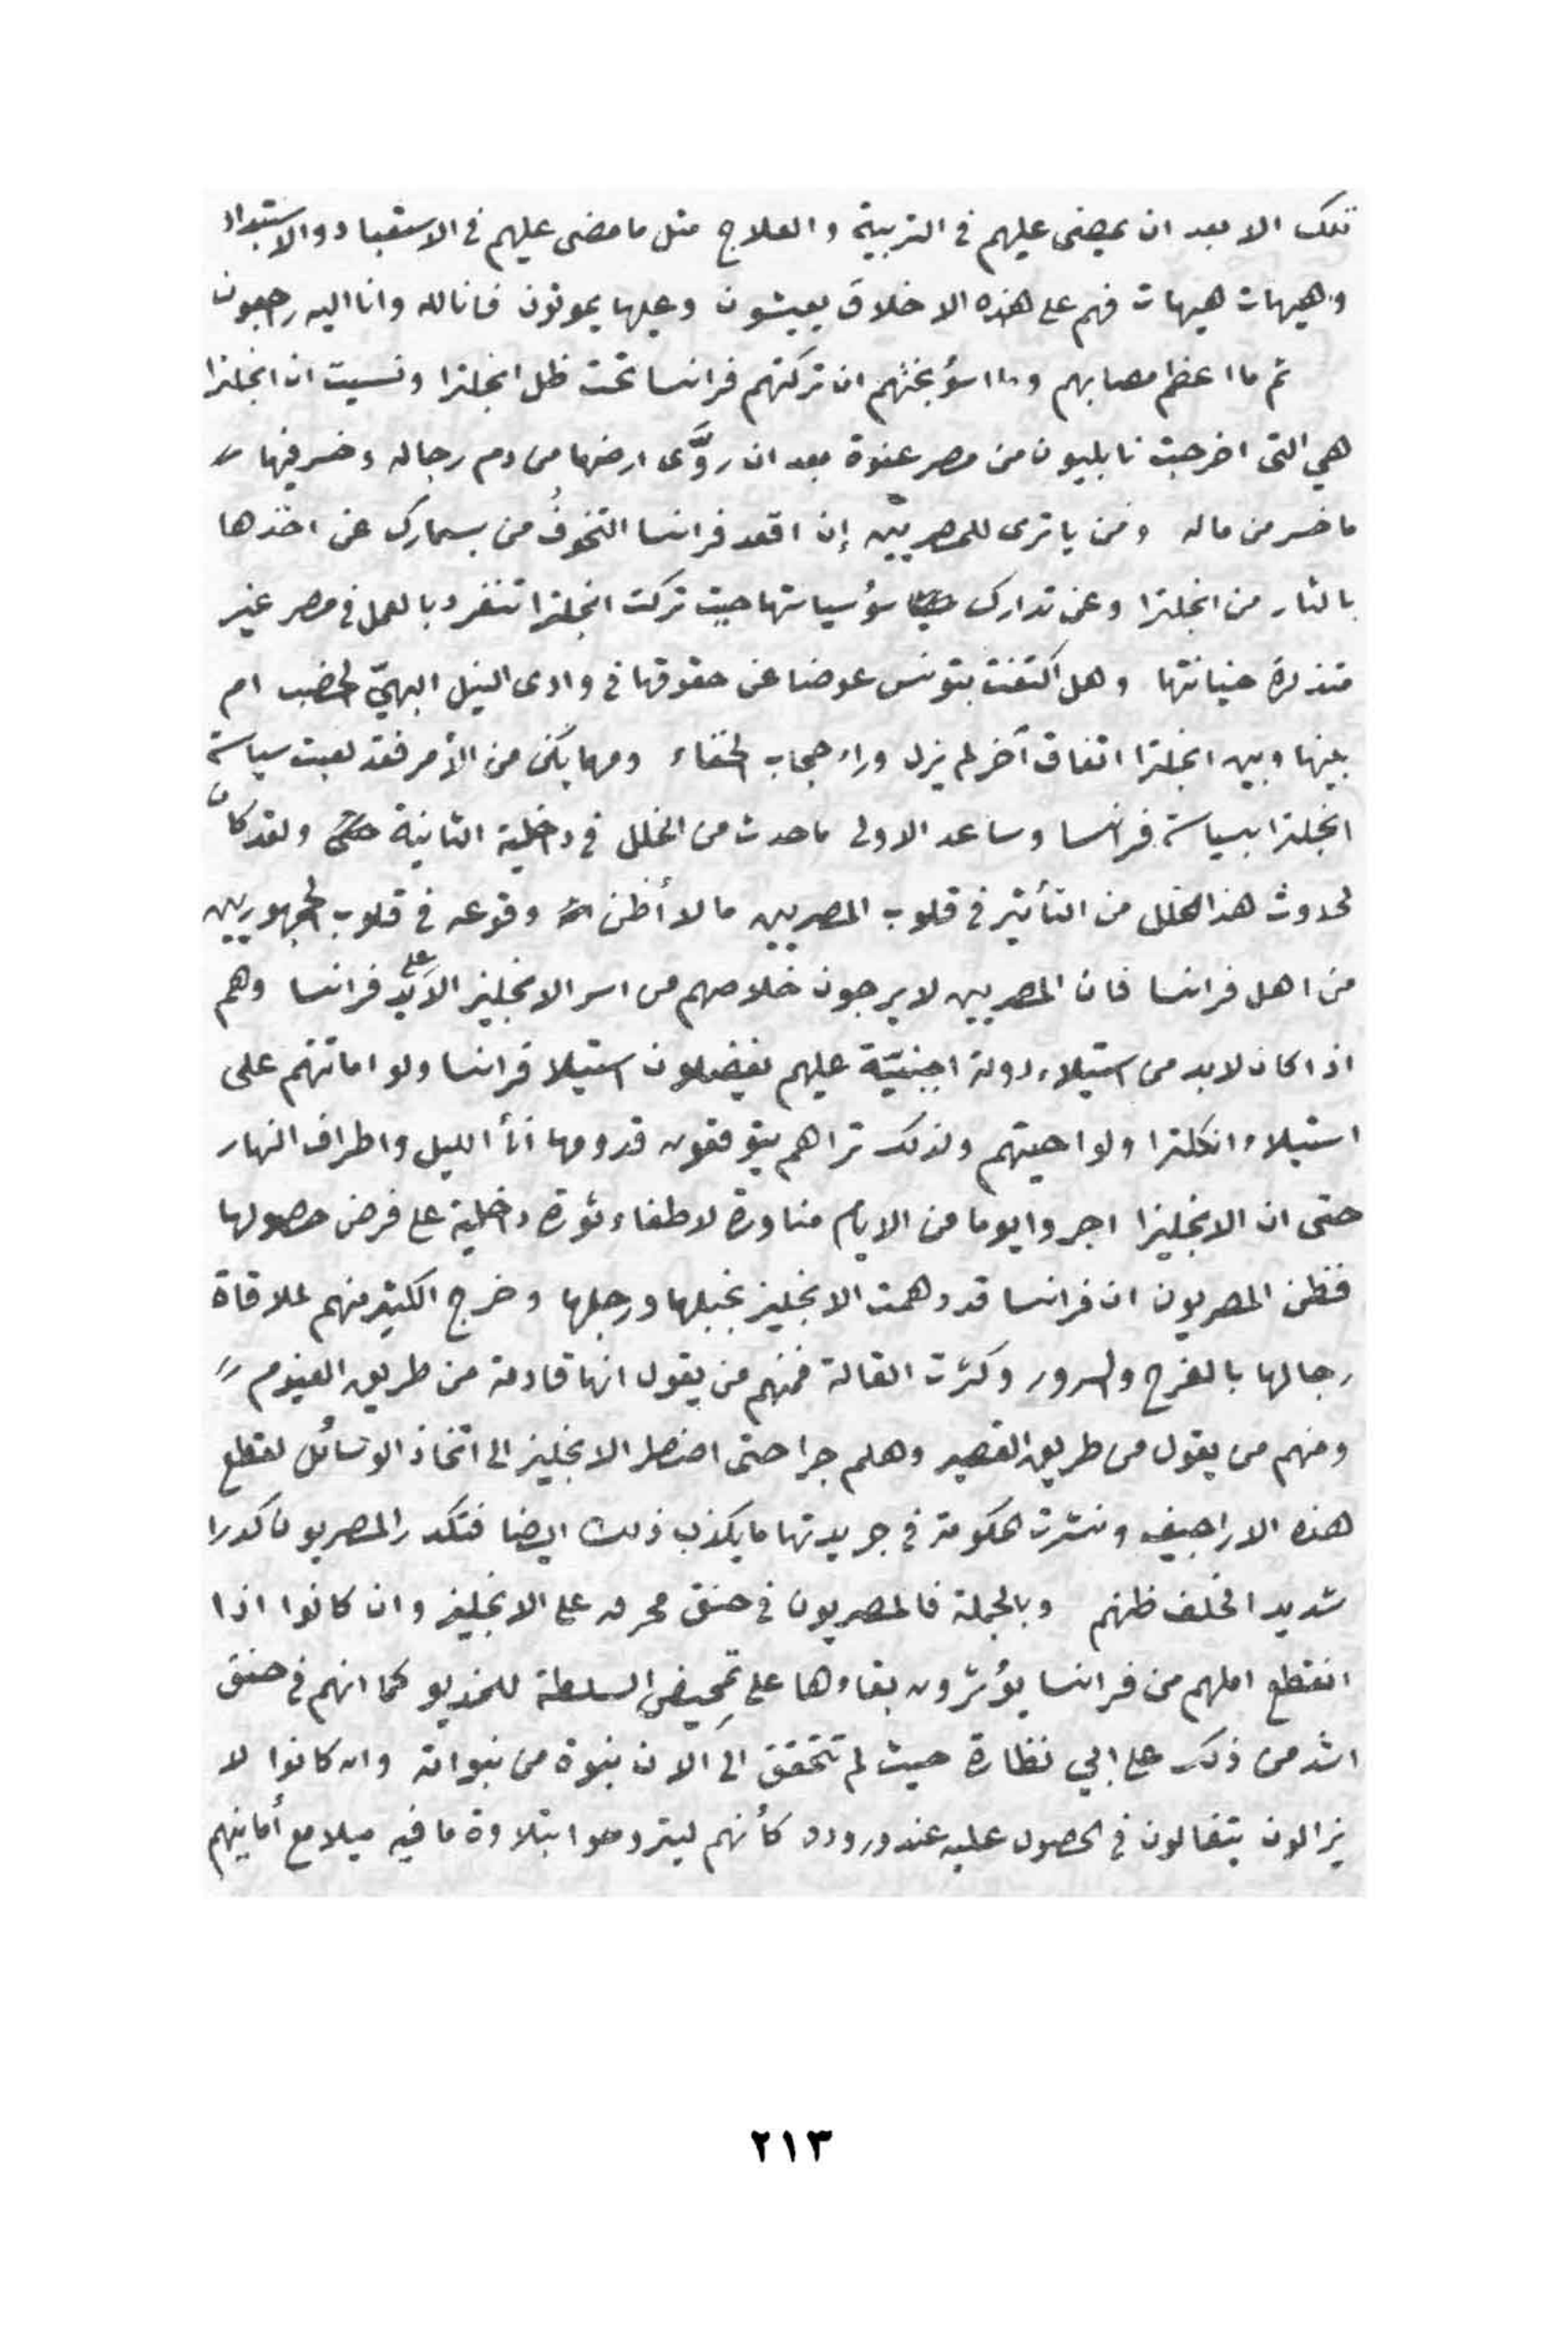 تلك الا بعد ان يمضى عليهم فى التربية و العلاج مثل ما مضى عليهم فى الاستعباد والاستبداد
وهيهات هيهات فهم على هذه الاخلاق يعيشون وعليها يموتون فانا لله وانا اليه رجعون
ثم ما اعظم مصابهم وما اسؤ بختهم ان تركتهم فرانسا تحت ظل انجلترا ونسيت ان انجلترا
هي التى اخرجت نابليون من مصر عنوة بعد ان روَّى ارضها من دم رجاله وخسر فيها
ما خسر من ماله ومن يا ترى للمصريين إن اقعد فرانسا التخوفُ من بسمارك عن اخذها
بالثار من انجلترا وعن تدارك سؤ سياستها حيث تركت انجلترا تنفرد بالعمل فى مصر غير
متذكرة خيانتها وهل اكتفت بتونس عوضا عن حقوقها فى وادى النيل البهيّ الخصب ام
بينها وبين انجلترا اتفاق آخر لم يزل وراء حجاب الخفاء ومهما يكن من الأمر فقد لعبت سياسة
انجلترا بسياسة فرانسا وساعد الاولى ما حدث من الخلل فى داخلية الثانية ولقد كان
لحدوث هذا الخلل من التأثير فى قلوب المصريين ما لا أظن وقوعه فى قلوب الجمهوريين
من اهل فرانسا فان المصريين لا يرجون خلاصهم من اسر الانجليز الا على يد فرانسا وهم
اذا كان لابد من استيلاء دولة اجنبيّة عليهم يفضلون استيلا فرانسا ولو اماتتهم على
استيلاء انكلترا ولو احيتهم ولذلك تراهم يتوقعون قدومها اناأ الليل واطراف النهار
حتى ان الانجليزا اجروا يوما من الايام مناورة لاطفاء ثورة داخلية على فرض حصولها
فظن المصريون ان فرانسا قد دهمت الانجليز بخيلها ورجلها وخرج الكثير منهم لملاقاة
رجالها بالفرح والسرور وكثرت القالة فمنهم من يقول انها قادمة من طريق الفيوم
ومنهم من يقول من طريق القصير وهلم جرا حتى اضطر الانجليز الى اتخاذ الوسائل لقطع
هذه الاراجيف ونشرت الحكومة فى جريدتها ما يكذب ذلك ايضا فتكدر المصريون كدرا
شديدا لخلف ظنهم وبالجملة فالمصريون فى حنق محرق على الانجليز وان كانوا اذا
انقطع املهم من فرانسا يؤثرون بقاءها على تمحيض السلطة للخديو كما انهم فى حنق
اشد من ذلك على ابي نظارة حيث لم تتحقق الى الآن نبوة من نبواته وان كانوا لا
يزالون يتغالون فى الحصول عليه عند وروده كأنهم ليتروحوا بتلاوة ما فيه ميلا مع أمانيهم
٢١٣